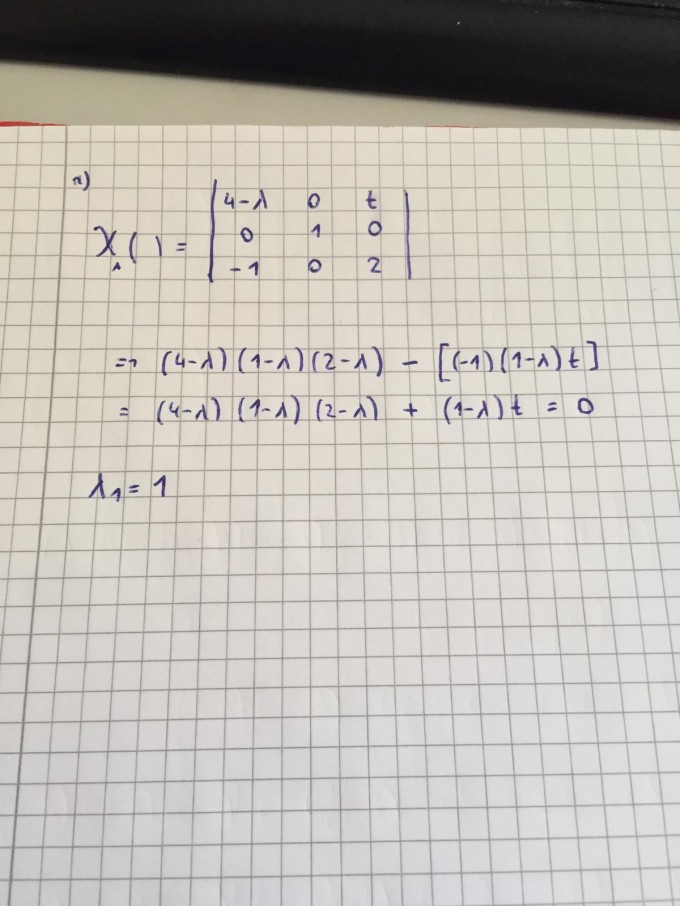 a)
| 4-λ 0 t |
χ_A ( ) = | 0 1 0 |
| -1 0 2 |
=> (4-λ)(1-λ)(2-λ) - [(-1)(1-λ)t]
= (4-λ) (1-λ) (2-λ) + (1-λ)t = 0
λ₁ = 1